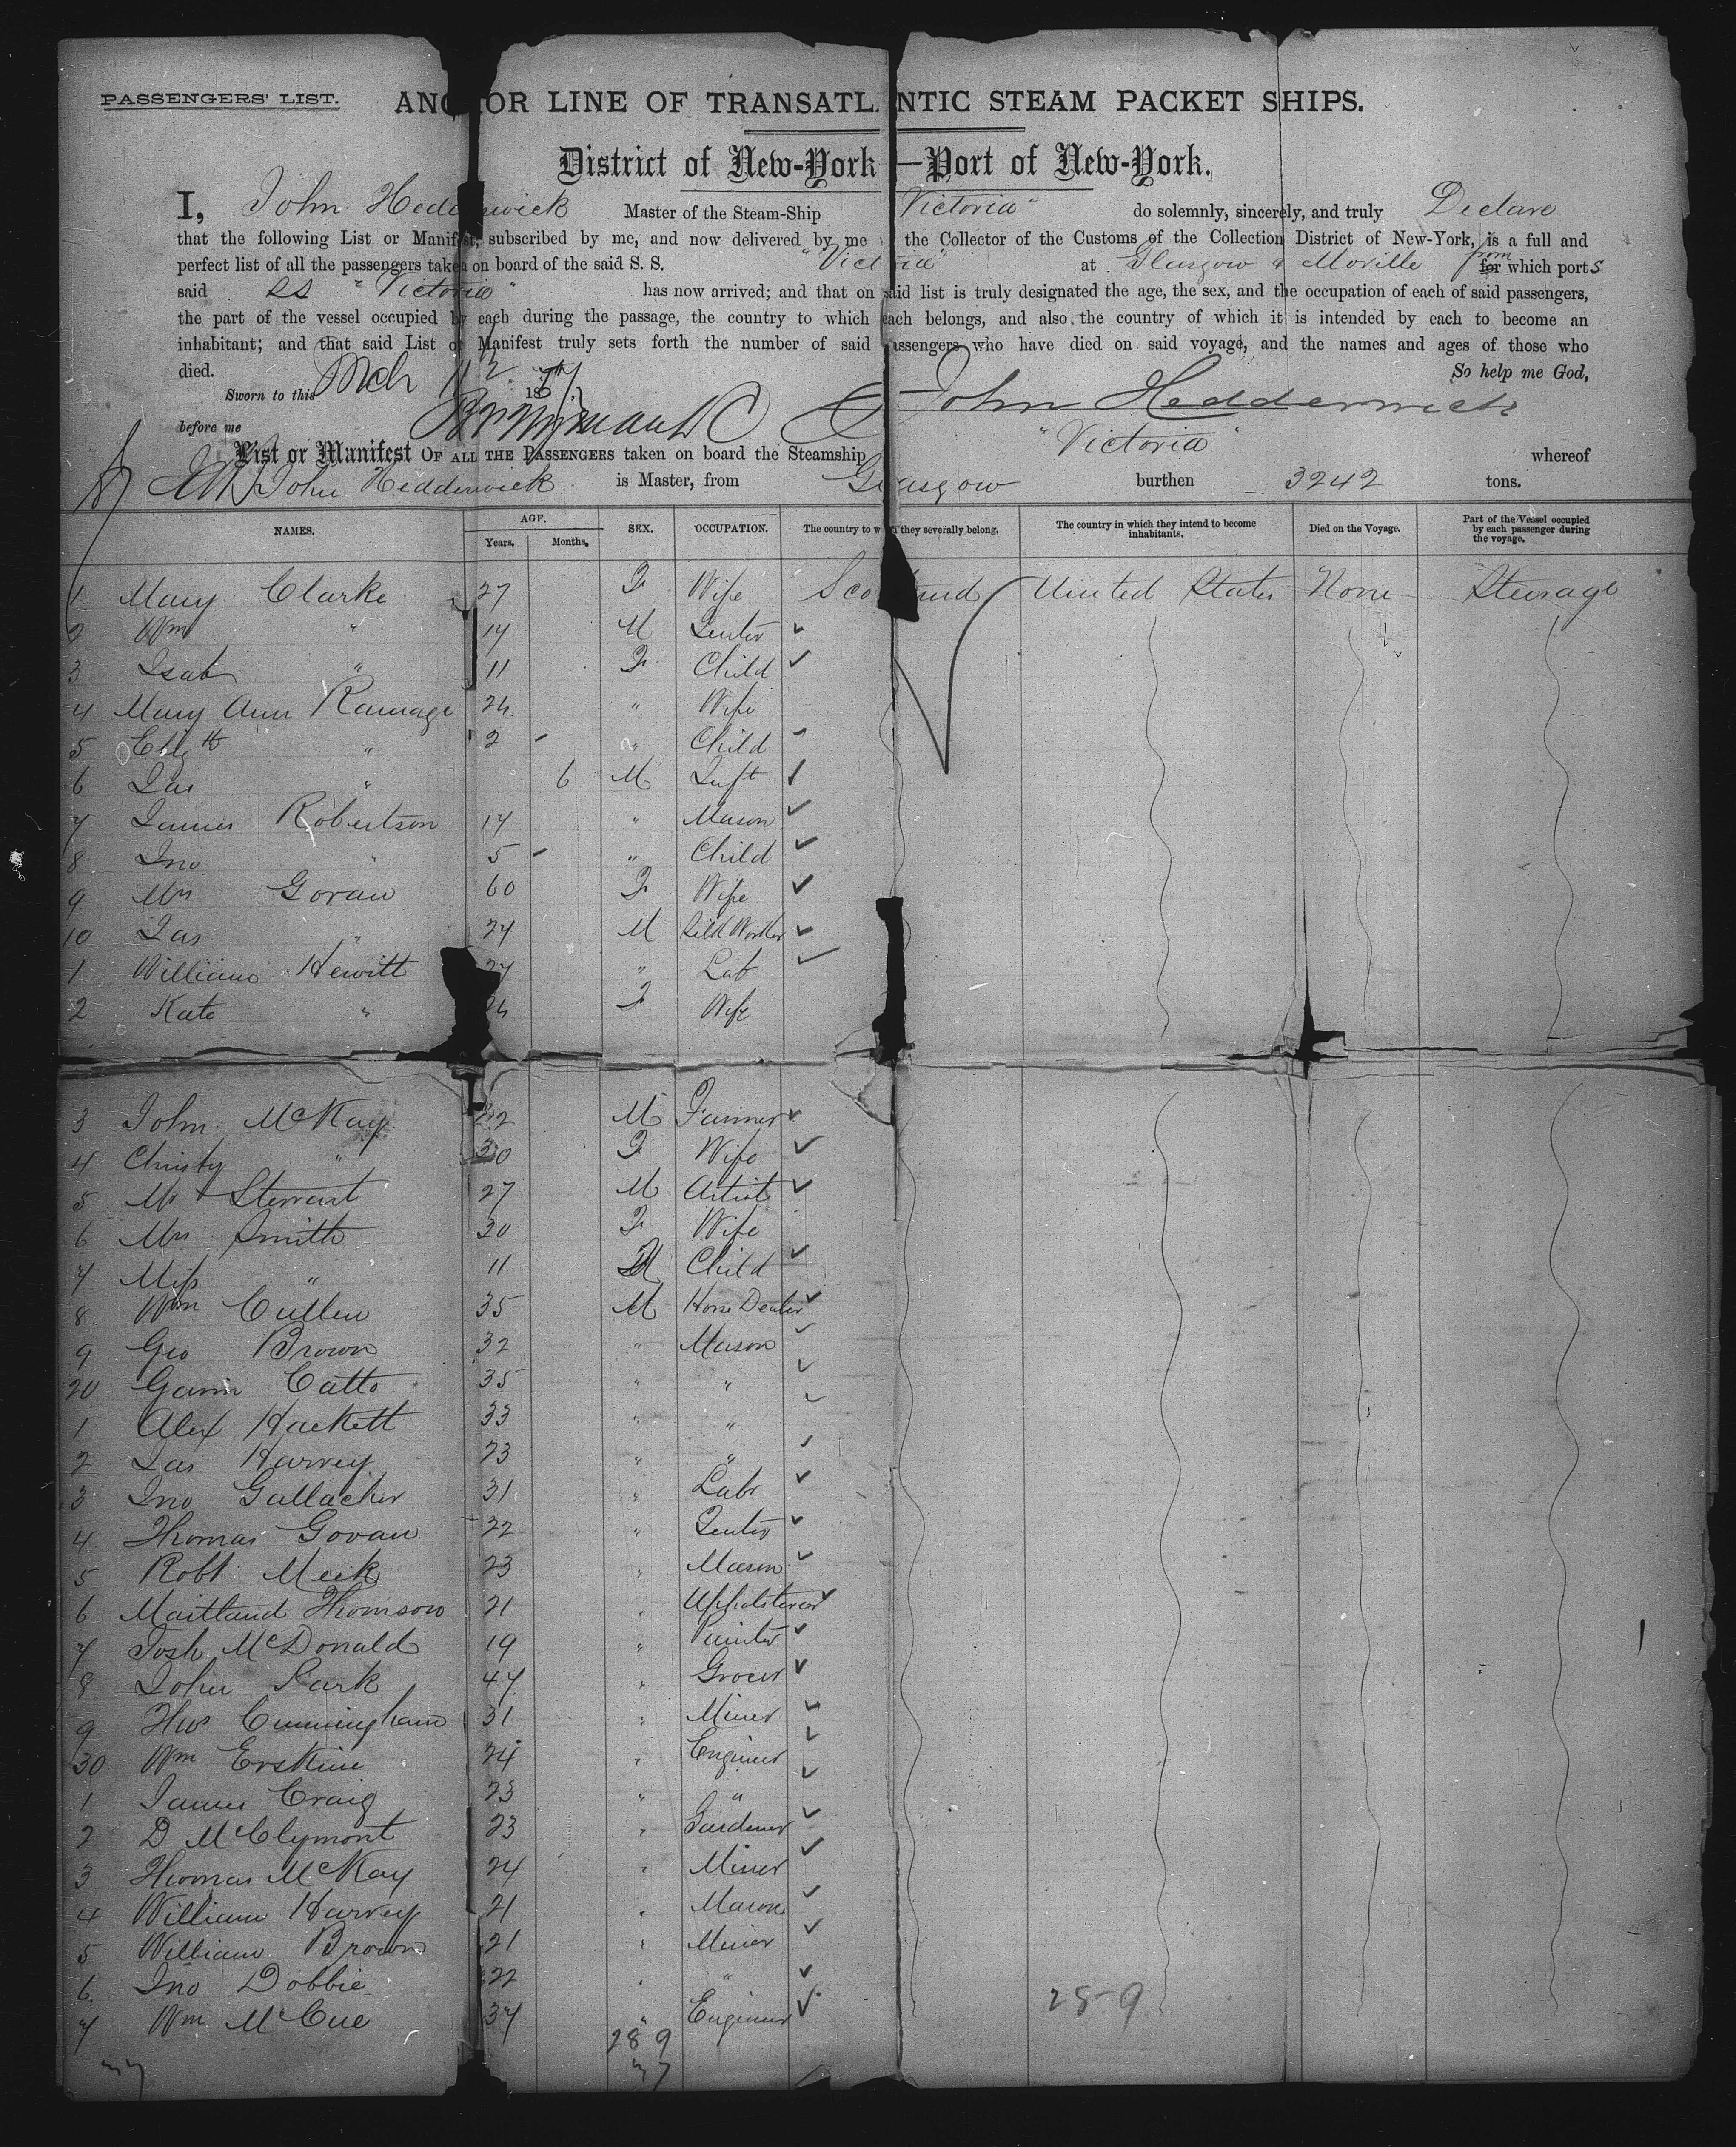 PASSENGERS' LIST.
ANCHOR LINE OF TRANSATLANTIC STEAM PACKET SHIPS.
District of New-York — Port of New-York.
I, John Hedderwick Master of the Steam-Ship Victoria" do solemnly, sincerely, and truly Declare
that the following List or Manifest, subscribed by me, and now delivered by me the Collector of the Customs of the Collection District of New-York, is a full and
perfect list of all the passengers taken on board of the said S. S. "Victoria" at Glasgow & Moville from for which ports
said SS "Victoria" has now arrived; and that on said list is truly designated the age, the sex, and the occupation of each of said passengers,
the part of the vessel occupied by each during the passage, the country to which each belongs, and also the country of which it is intended by each to become an
inhabitant; and that said List or Manifest truly sets forth the number of said passengers who have died on said voyage, and the names and ages of those who
died. So help me God,
Sworn to this Mch 12 1877
before me John Hedderwick
List or Manifest OF ALL THE PASSENGERS taken on board the Steamship "Victoria" whereof
John Hedderwick is Master, from Glasgow burthen 3242 tons.
NAMES. AGE. Years. Months. SEX. OCCUPATION. The country to which they severally belong. The country in which they intend to become inhabitants. Died on the Voyage. Part of the Vessel occupied by each passenger during the voyage.
1 Mary Clarke 27 F Wife Scotland United States None Steerage
2 Wm " 14 M Tenter
3 Isab " 11 F Child
4 Mary Ann Ramage 24 " Wife
5 Elizth " 2 " Child
6 Jas " 6 M Inft
7 James Robertson 17 " Mason
8 Jno " 5 " Child
9 Mrs Govan 60 F Wife
10 Jas " 24 M Silk Worker
1 William Hewitt " Lab
2 Kate " F Wife
3 John McKay 22 M Farmer
4 Christy " 30 F Wife
5 Mr Stewart 27 M Artist
6 Mrs Smith 30 F Wife
7 Miss " 11 Child
8 Wm Cullen 35 M Horse Dealer
9 Geo Brown 32 " Mason
20 Gavin Catto 35 " "
1 Alex Hackett 33 " "
2 Jas Harvey 23 " "
3 Jno Gallacher 31 " Labr
4 Thomas Govan 22 " Tenter
5 Robt Meek 23 " Mason
6 Maitland Thomson 21 " Upholsterer
7 Josh McDonald 19 " Painter
8 John Park 47 " Grocer
9 Thos Cunningham 31 " Miner
30 Wm Erskine 24 " Engineer
1 James Craig 23 " "
2 D McClymont 23 " Gardener
3 Thomas McKay 24 " Miner
4 William Harvey 21 " Mason
5 William Brown 21 " Miner
6 Jno Dobbie 22 " "
7 Wm McCue 37 " Engineer
28 9
28-9
37